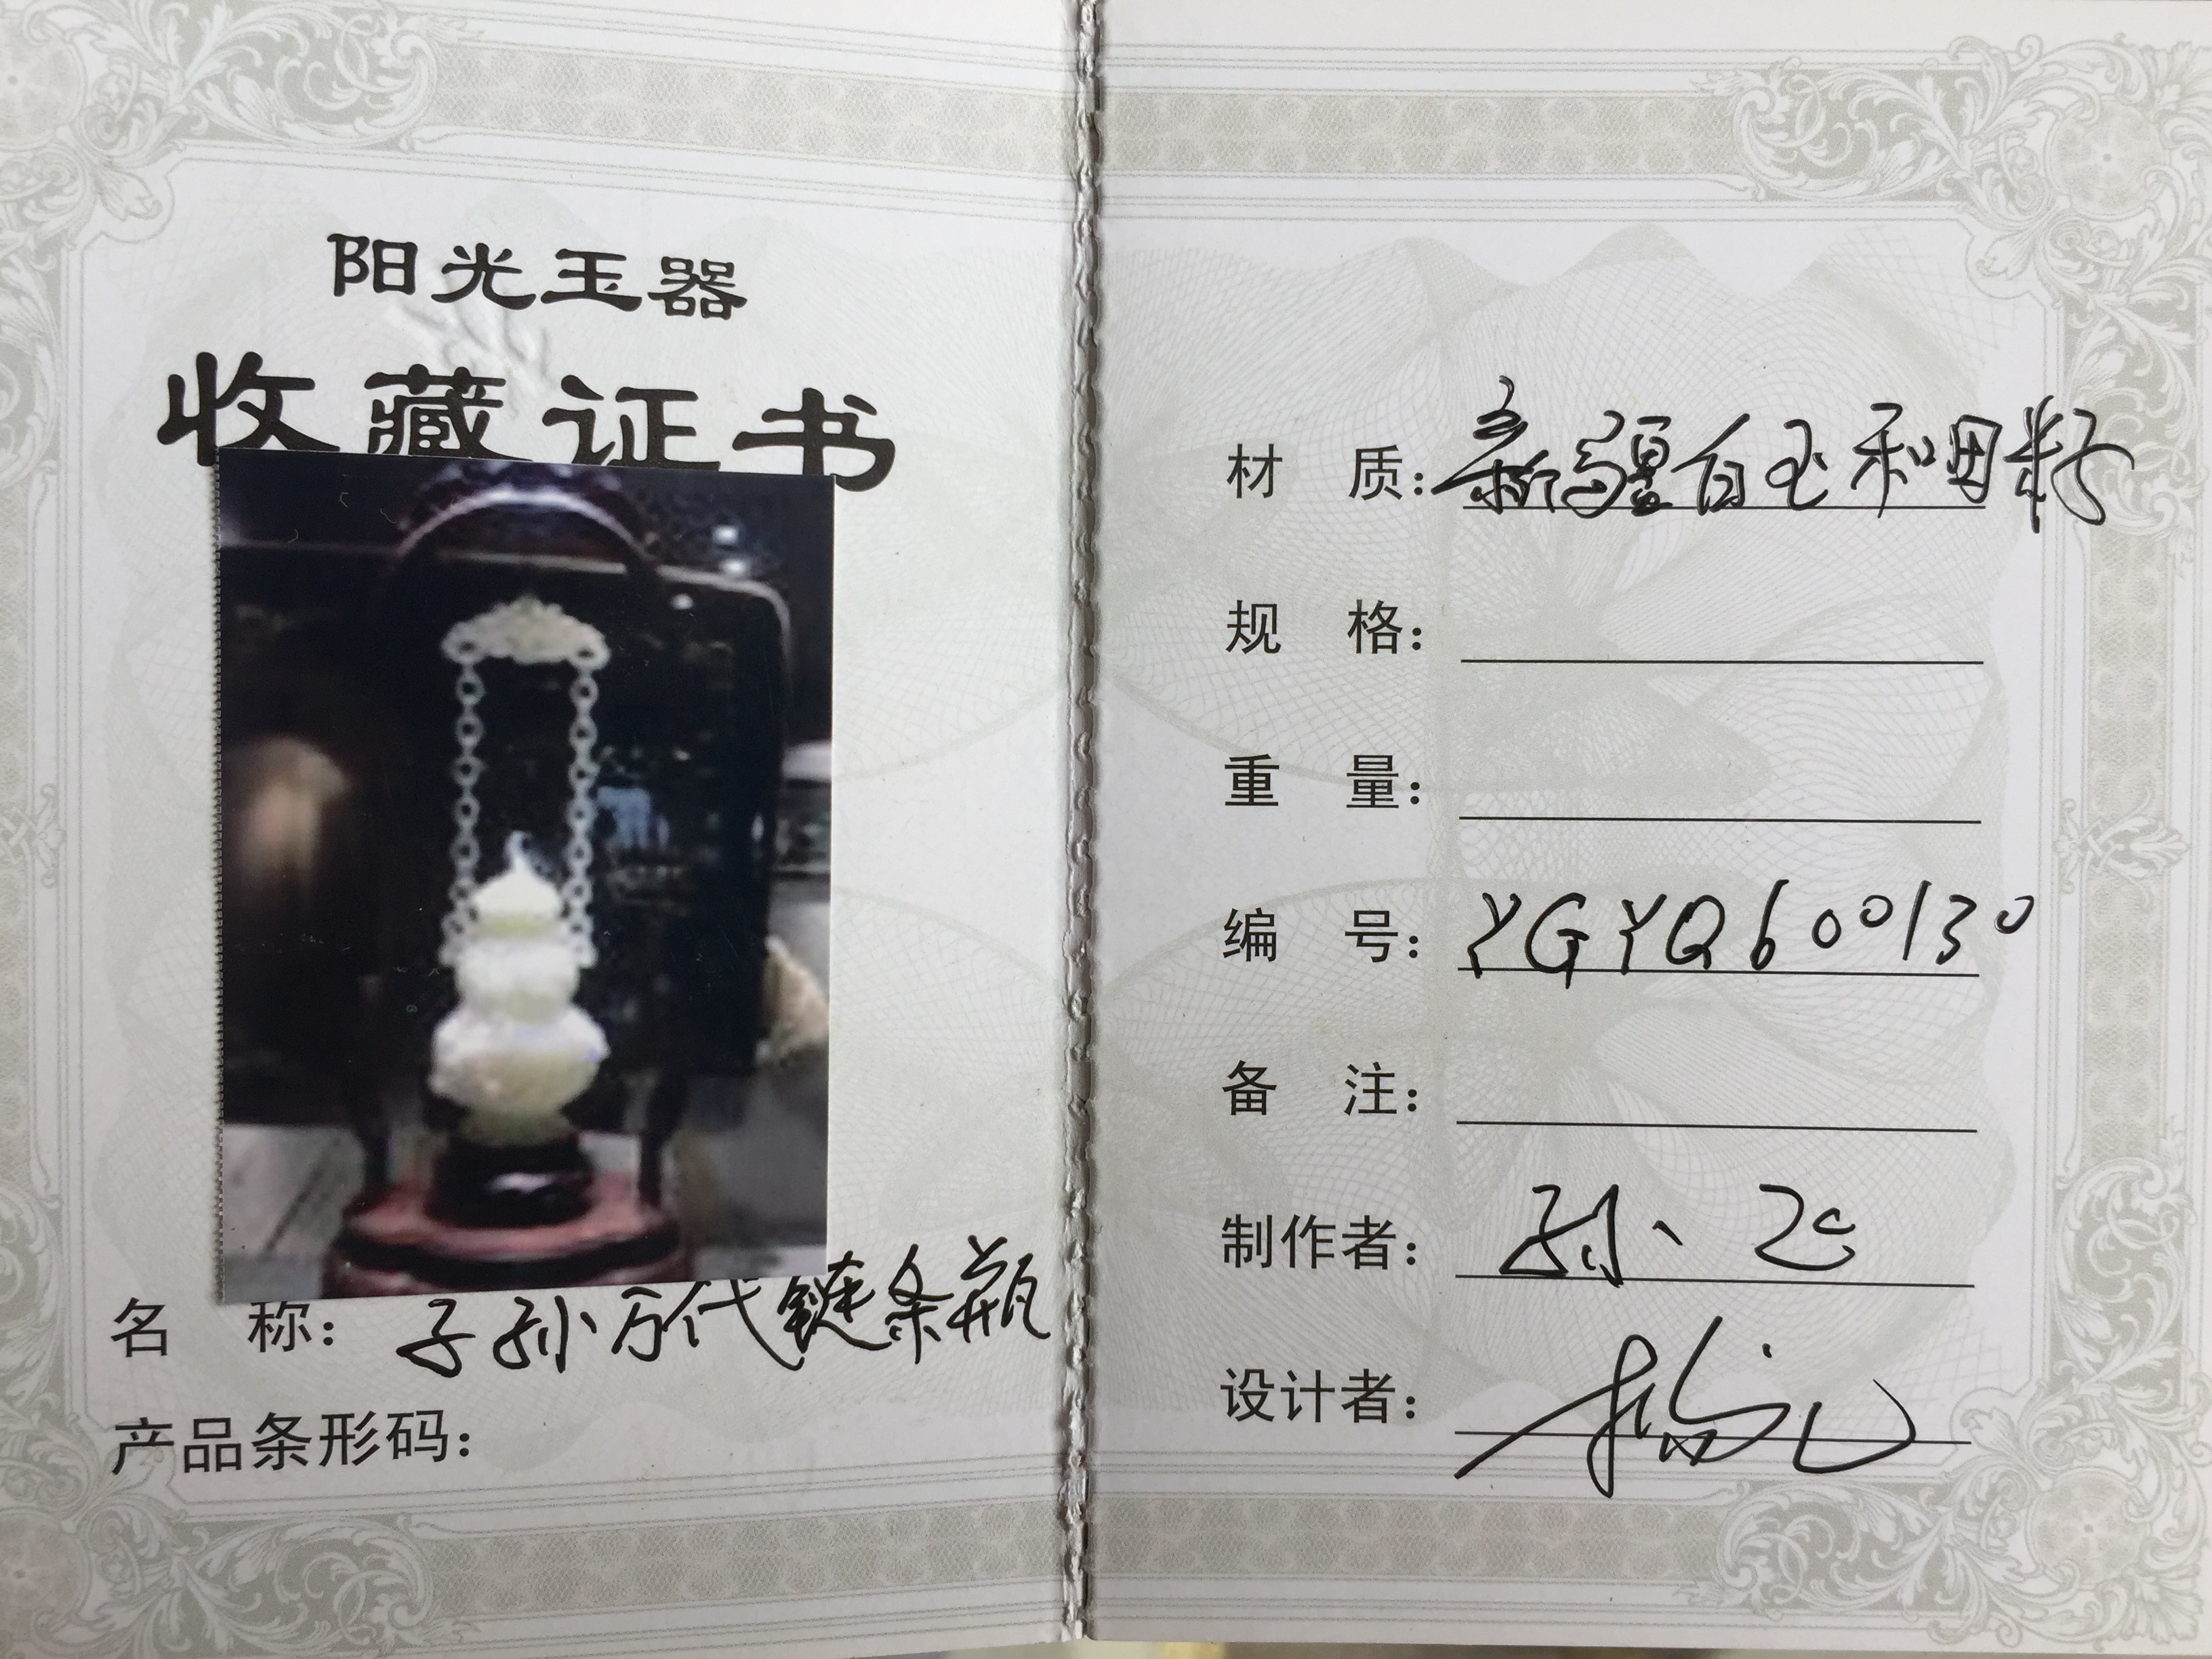 阳光玉器
收藏证书
名 称：子孙万代链条瓶
产品条形码：
材 质：新疆白玉和田籽
规 格：
重 量：
编 号：YGYQ600130
备 注：
制作者：孙飞
设计者：